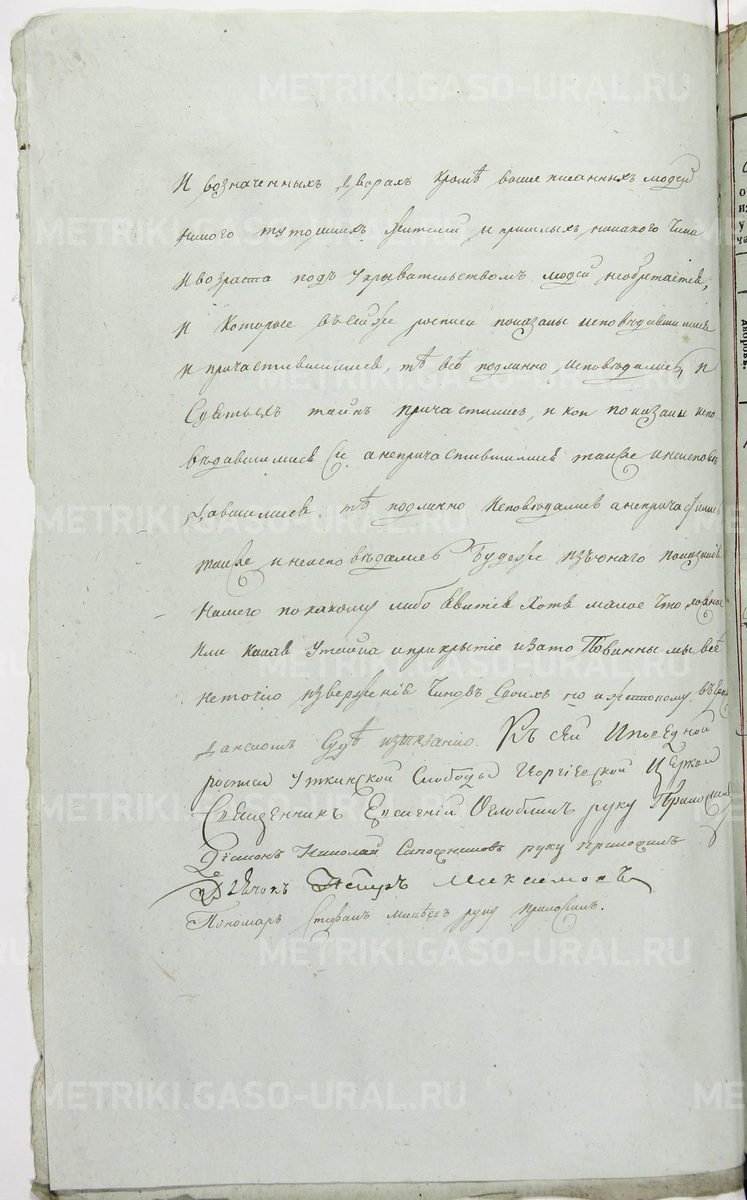 И возначенныхъ дворахъ кромѣ вышеписанныхъ людей
никого тутошнихъ жителей и пришлыхъ никакого чина
и возраста подъ укрывательствомъ людей необретается,
и которые въсейже росписи показаны исповѣдавшимися
и причастившимися, тѣ всѣ подлинно исповѣдались, и
Святыхъ таинъ причастились, и кои показаны испо
вѣдавшимися а непричастившимися также и неисповѣ
давшимися, тѣ подлинно исповѣдались а непричастились
также и неисповѣдались Будеже изъ онаго показанія
нашего по какому либо хотя малое что ложное
или какая утайка и прикрытіе и зато Повинны мы всѣ
неточію изверженіе Чиновъ своихъ но и жестокому въ
Суде истязанію. Къ сей Исповедной
росписи Уткинской Слободы Георгіевской Церкви
Священникъ Евсигній Оглоблинъ руку Приложилъ
Діаконъ Николай Сапожниковъ руку приложилъ
Дьячокъ Петръ Максимовъ
Пономарь Стефанъ руку приложилъ.
METRIKI.GASO-URAL.RU